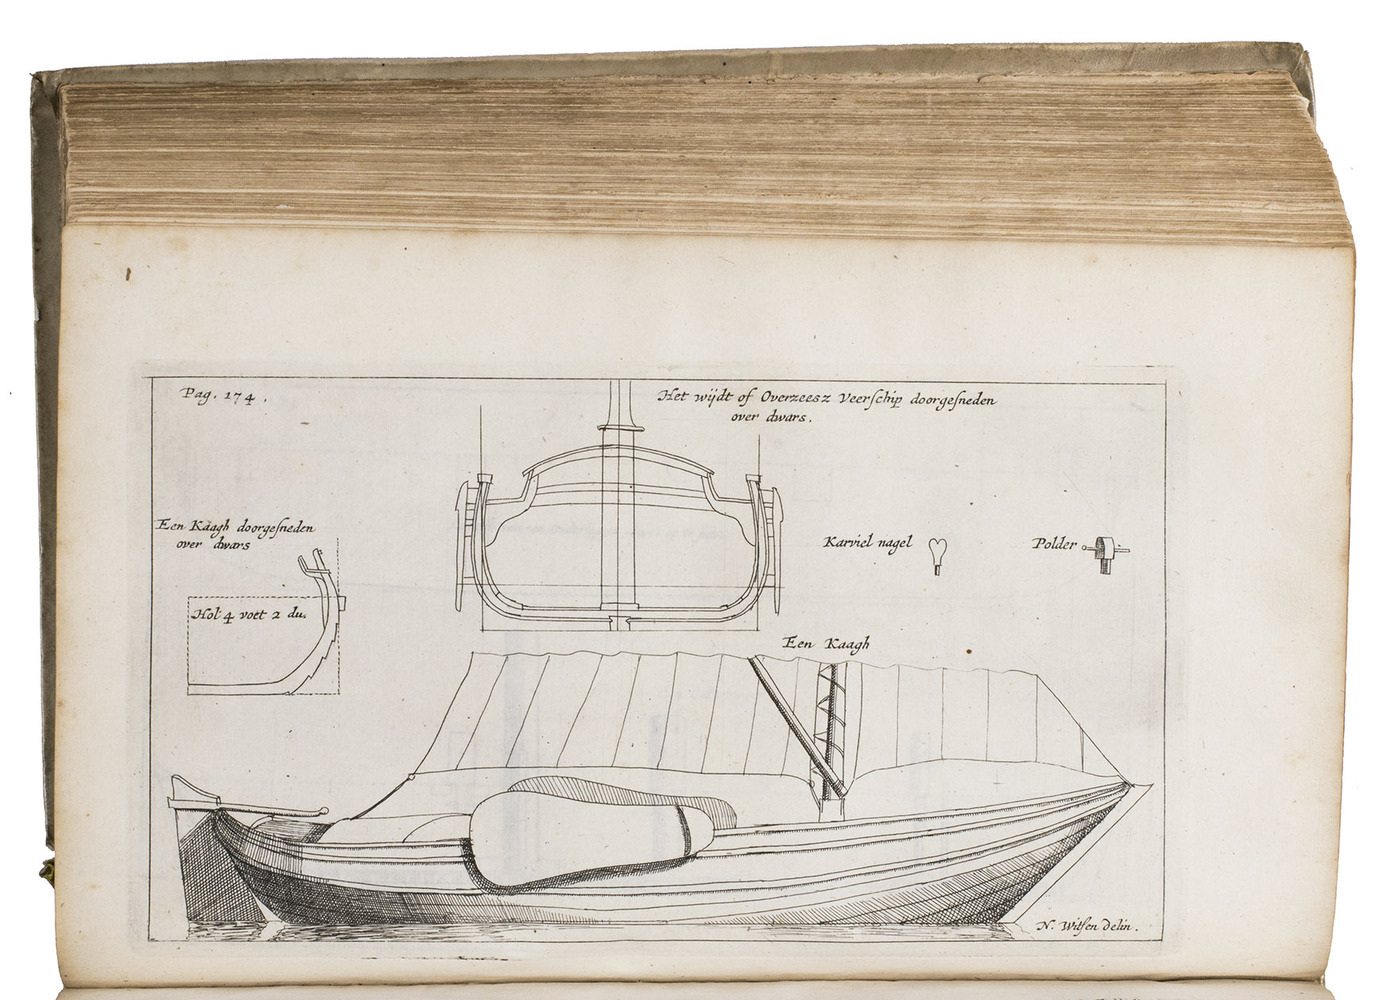 Pag. 174.
Het wijdt of Overzeesz Veerschip doorgesneden
over dwars.
Een Kaagh doorgesneden
over dwars
Karviel nagel
Polder
Hol 4 voet 2 du.
Een Kaagh
N. Witsen delin.